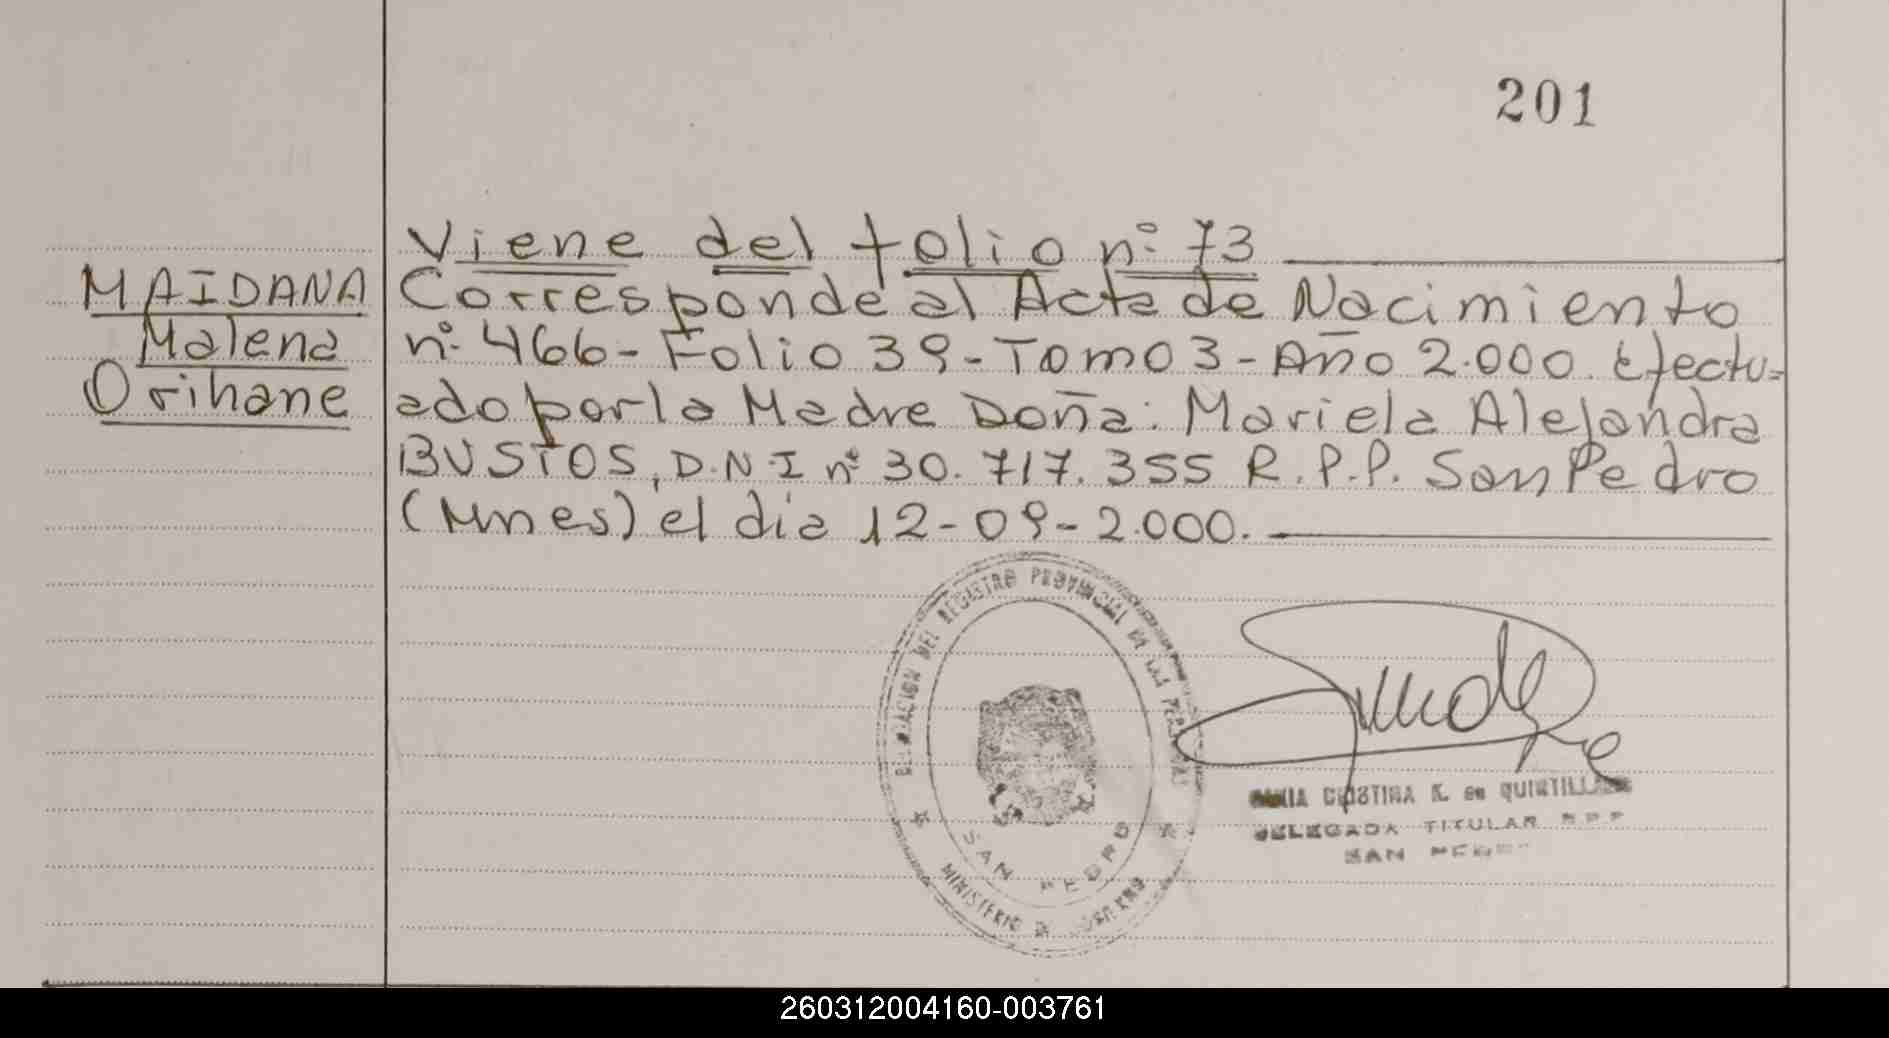 201
Viene del folio nº 73
MAIDANA
Malena
Orihane
Corresponde al Acta de Nacimiento
nº 466 - Folio 39 - Tomo 3 - Año 2.000. Efectu=
ado por la Madre Doña: Mariela Alejandra
BUSTOS, D.N.I nº 30.717.355 R.P.P. San Pedro
(Mnes) el dia 12-09-2.000.
DELEGACION DEL REGISTRO PROVINCIAL DE LAS PERSONAS
SAN PEDRO
MINISTERIO DE GOBIERNO
CRISTINA K. de
DELEGADA TITULAR R.P.P
SAN PEDRO
260312004160-003761